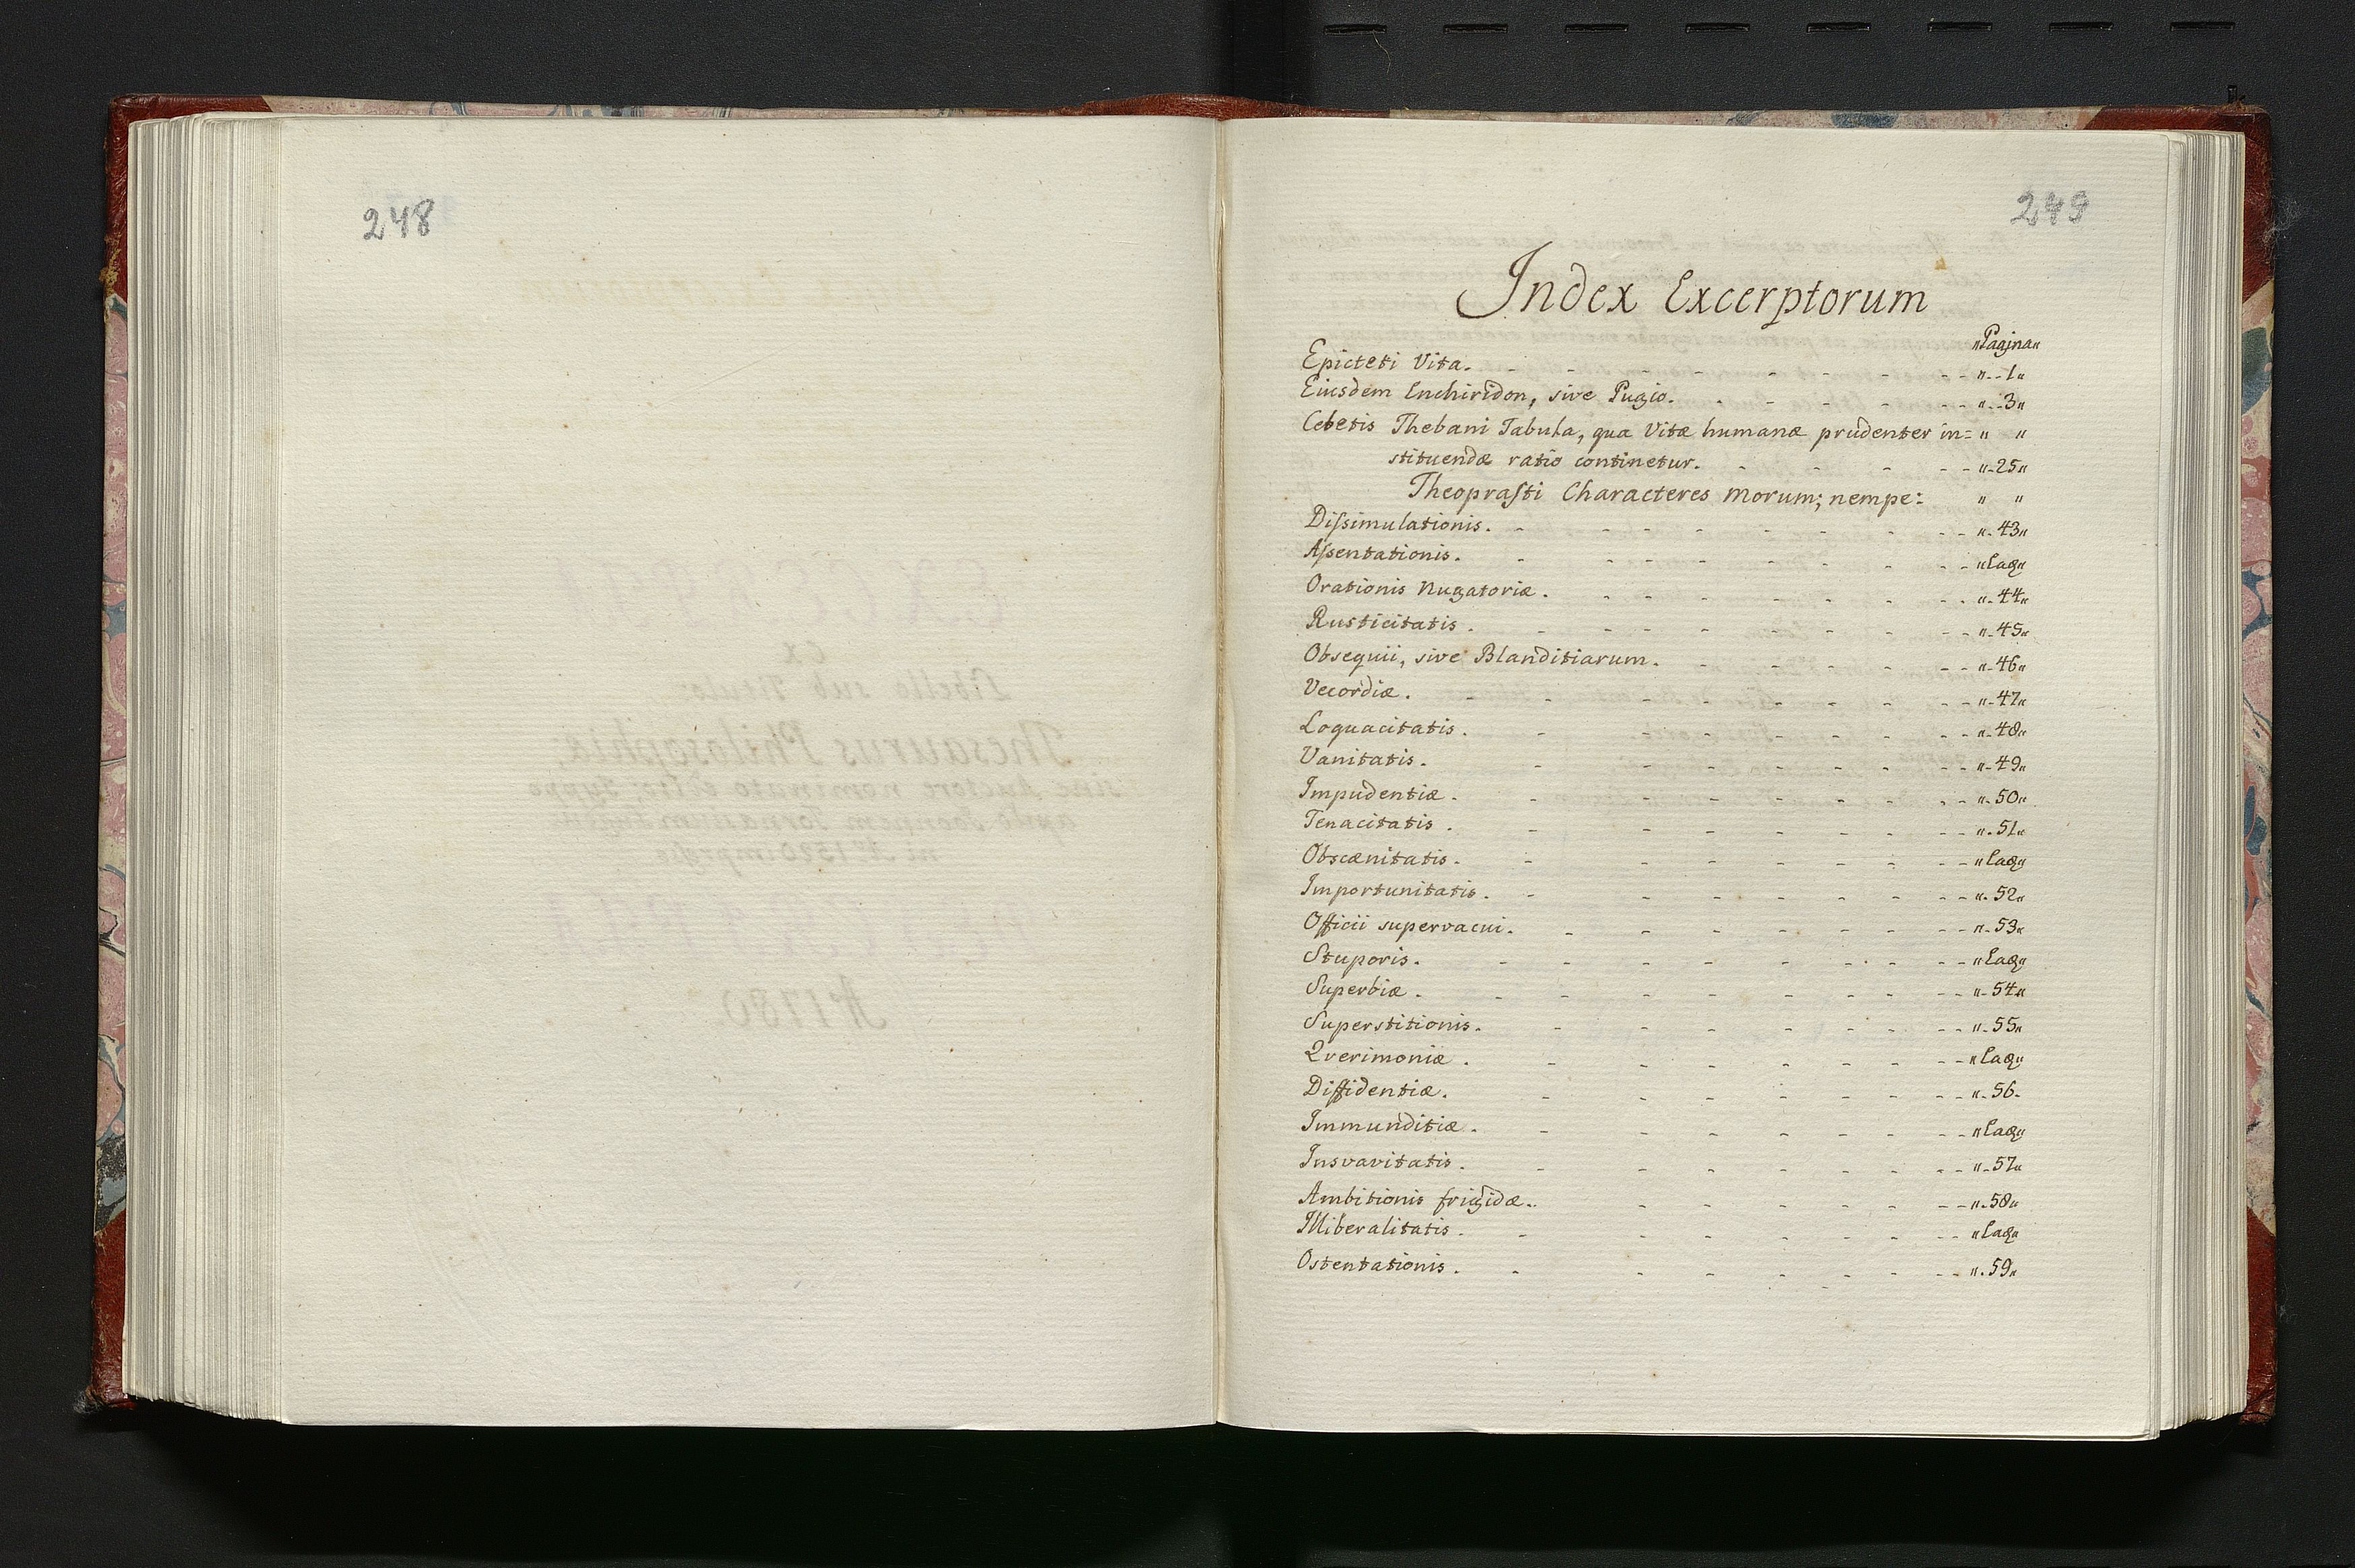 248
249
Index Excerptorum
„Pagina„
Epicteti Vita. - - - - - - - - „--1„
Eiusdem Enchiridon, sive Pugio. - - - - - - „--3„
Cebetis Thebani Tabula, qua Vitæ humanæ prudenter in= „ „
stituendæ ratio continetur. - - - - - „-25„
Theoprasti Characteres morum; nempe: „ „
Dissimulationis. - - - - - - - - - „-43„
Assentationis. - - - - - - - - - „Eaq„
Orationis Nugatoriæ. - - - - - - - - „-44„
Rusticitatis. - - - - - - - - - „-45„
Obsequii, sive Blanditiarum. - - - - - - - „-46„
Vecordiæ. - - - - - - - - - „-47„
Loquacitatis. - - - - - - - - „-48„
Vanitatis. - - - - - - - - „-49„
Impudentiæ. - - - - - - - - „-50„
Tenacitatis. - - - - - - - - „-51„
Obscænitatis. - - - - - - - - „Eaq„
Importunitatis. - - - - - - - - „-52„
Officii supervacui. - - - - - - - - „-53„
Stuporis. - - - - - - - - - „Eaq„
Superbiæ. - - - - - - - - - „-54„
Superstitionis. - - - - - - - - „-55„
Qverimoniæ. - - - - - - - - „Eaq„
Diffidentiæ. - - - - - - - - „-56-
Immunditiæ. - - - - - - - - „Eaq„
Insvavitatis. - - - - - - - - „-57„
Ambitionis frigidæ. - - - - - - - „-58„
Illiberalitatis. - - - - - - - - „Eaq„
Ostentationis. - - - - - - - - „-59„